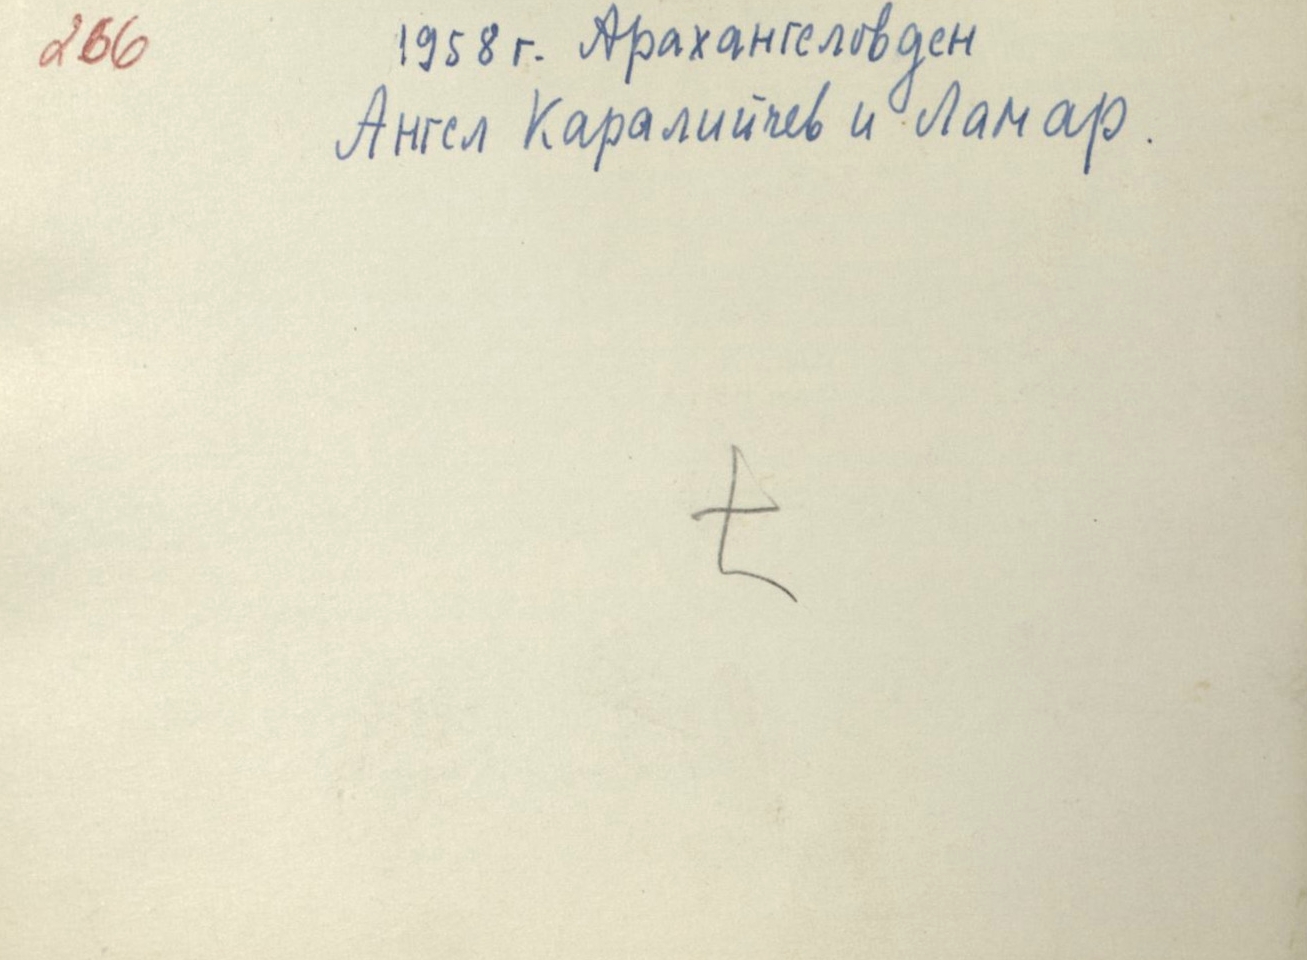 266
1958 г. Арахангеловден
Ангел Каралийчев и Ламар.